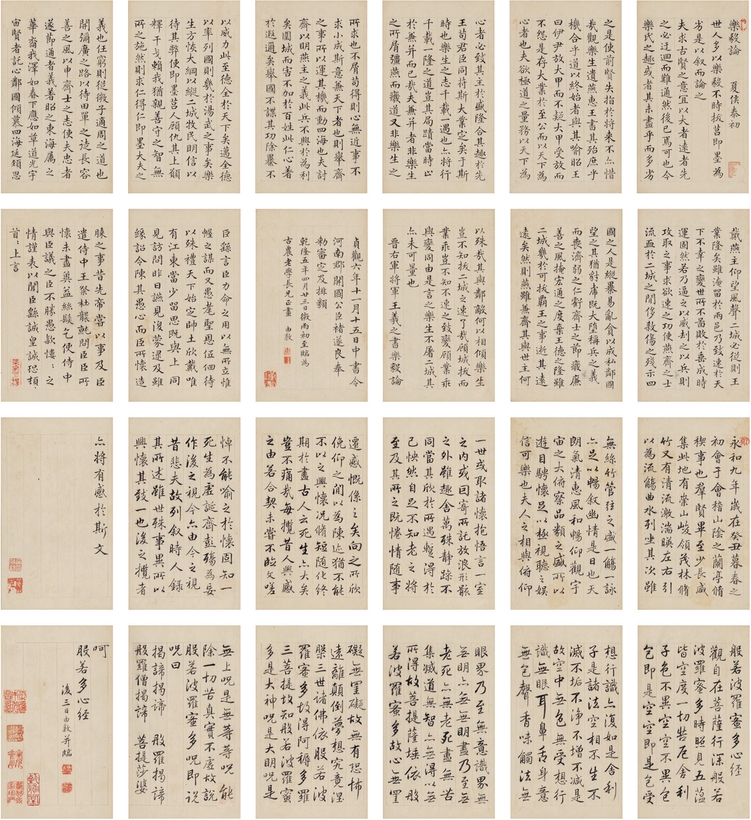 樂毅論 夏侯泰初
世人多以樂毅不時拔莒即墨為
劣是以叙而論之
夫求古賢之意宜以大者遠者先
之必迂迴而難通然後已焉可也今
樂氏之趣或者其未盡乎而多劣
之是使前賢失指於將來不亦惜
哉觀樂生遺燕惠王書其殆庶乎
機合乎道以終始者與其喻昭王
曰伊尹放大甲而不疑大甲受放而
不怨是存大業於至公而以天下為
心者也夫欲極道之量務以天下為
心者必致其主於盛隆合其趣於先
王苟君臣同符斯大業定矣于斯
時也樂生之志千載一遇也亦將行
千載一隆之道豈其局蹟當時止
於兼并而已哉夫兼并者非樂生之
所屑彊燕而廢道又非樂生之
所求也不屑苟得則心無近事不
求小成斯意兼天下者也則舉齊
之事所以運其機而動四海也夫討
齊以明燕主之義此兵不興於為利
矣圍城而害不加於百姓此仁心著
於遐邇矣舉國不謀其功除暴不
以威力此至德全於天下矣邁全德
以率列國則幾於湯武之事矣樂
生方恢大綱以縱二城牧民明信以
待其弊使即墨莒人顧仇其上願
釋干戈賴我猶親善守之智無
所之施然則求仁得仁即墨大夫之
義也任窮則從微子適周之道也
開彌廣之路以待田單之徒長容
善之風以申齊士之志使夫忠者
遂節通者義著昭之東海屬之
華裔我澤如春下應如草道光宇
宙賢者託心鄰國傾慕四海延頸思
戴燕主仰望風聲二城必從則王
業隆矣雖淹留於兩邑乃致速於天
下不幸之變世所不圖敗於垂成時
運固然若乃逼之以威劫之以兵則
攻取之事求欲速之功使燕齊之士
流血於二城之間侈殺傷之殘示四
國之人是縱暴易亂貪以成私鄰國
望之其猶豺虎既大墮稱兵之義
而喪濟弱之仁虧齊士之節廢廉
善之風掩宏通之度棄王德之隆雖
二城幾於可拔霸王之事逝其
遠矣然則燕雖兼齊其與世主何
以殊哉其與鄰敵何以相傾樂生
豈不知拔二城之速了哉顧城拔而
業乖豈不知不速之致變顧業乖
與變同由是言之樂生不屠二城其
亦未可量也
晉右軍將軍王羲之書樂毅論
貞觀六年十一月十五日中書令
河南郡開國公臣褚遂良奉
勅審定及排類
乾隆五年四月廿三日微雨初至臨為
古農老學長兄 由敦
臣繇言臣力命之用以無所立惟
幄之謀而又愚耄聖恩低徊待
以殊禮天下始定師土欣戴唯
有江東當少留思既與上同
見訪問
緣詔令陳其愚心而臣所懷造
事昔先帝嘗以事及臣
遣侍中王粲杜襲就問臣臣所
懷未盡奠益絲髮乞使侍中
與臣議之臣不勝愚款慺慺之
情謹表以聞臣繇誠皇誠恐頓
首首上言
永和九年歲在癸丑暮春之
初會于會稽山陰之蘭亭脩
禊事也群賢畢至少長咸
集此地有崇山峻領茂林脩
竹又有清流激湍暎左右引
以為流觴曲水列坐其次雖
無絲竹管弦之盛一觴一詠
亦足以暢叙幽情是日也天
朗氣清惠風和暢仰觀宇
宙之大俯察品類之盛所以
遊目騁懷足以極視聽之娛
信可樂也夫人之相與俯仰
一世或取諸懷抱悟言一室
之內或因寄所託放浪形骸
之外雖趣舍萬殊靜躁不
同當其欣於所遇暫得於
己怏然自足不知老之將
至及其所之既惓情隨事
遷感慨係之矣向之所欣
俛仰之間以為陳迹猶不能
不以之興懷況脩短隨化終
期於盡古人云死生亦大矣
豈不痛哉每攬昔人興感
之由若合一契未嘗不臨文嗟
悼不能喻之於懷固知一
死生為虛誕齊彭殤為妄
作後之視今亦由今之視
昔悲夫故列叙時人錄
其所述雖世殊事異所以
興懷其致一也後之攬者
亦將有感於斯文
般若波羅蜜多心經
觀自在菩薩行深般若
波羅蜜多時照見五蘊
皆空度一切苦厄舍利
子色不異空空不異色
色即是空空即是色受
想行識亦復如是舍利
子是諸法空相不生不
滅不垢不淨不增不減是
故空中無色無受想行
識無眼耳鼻舌身意
無色聲香味觸法無
眼界乃至無意識界
無無明亦無無明盡乃至無
老死亦無老死盡無苦
集滅道無智亦無得以無
所得故菩提薩埵依般
若波羅蜜多故心無罣
礙無罣礙故無有恐怖
遠離顛倒夢想究竟涅
槃三世諸佛依般若波
羅蜜多故得阿耨多羅
三藐三菩提故知般若波羅蜜
多是大神咒是大明咒是
無上咒是無等等咒能
除一切苦真實不虛故說
般若波羅蜜多咒即說
咒曰
揭諦揭諦 般羅揭諦
般羅僧揭諦 菩提莎婆
呵
般若多心經
後三日由敦并臨